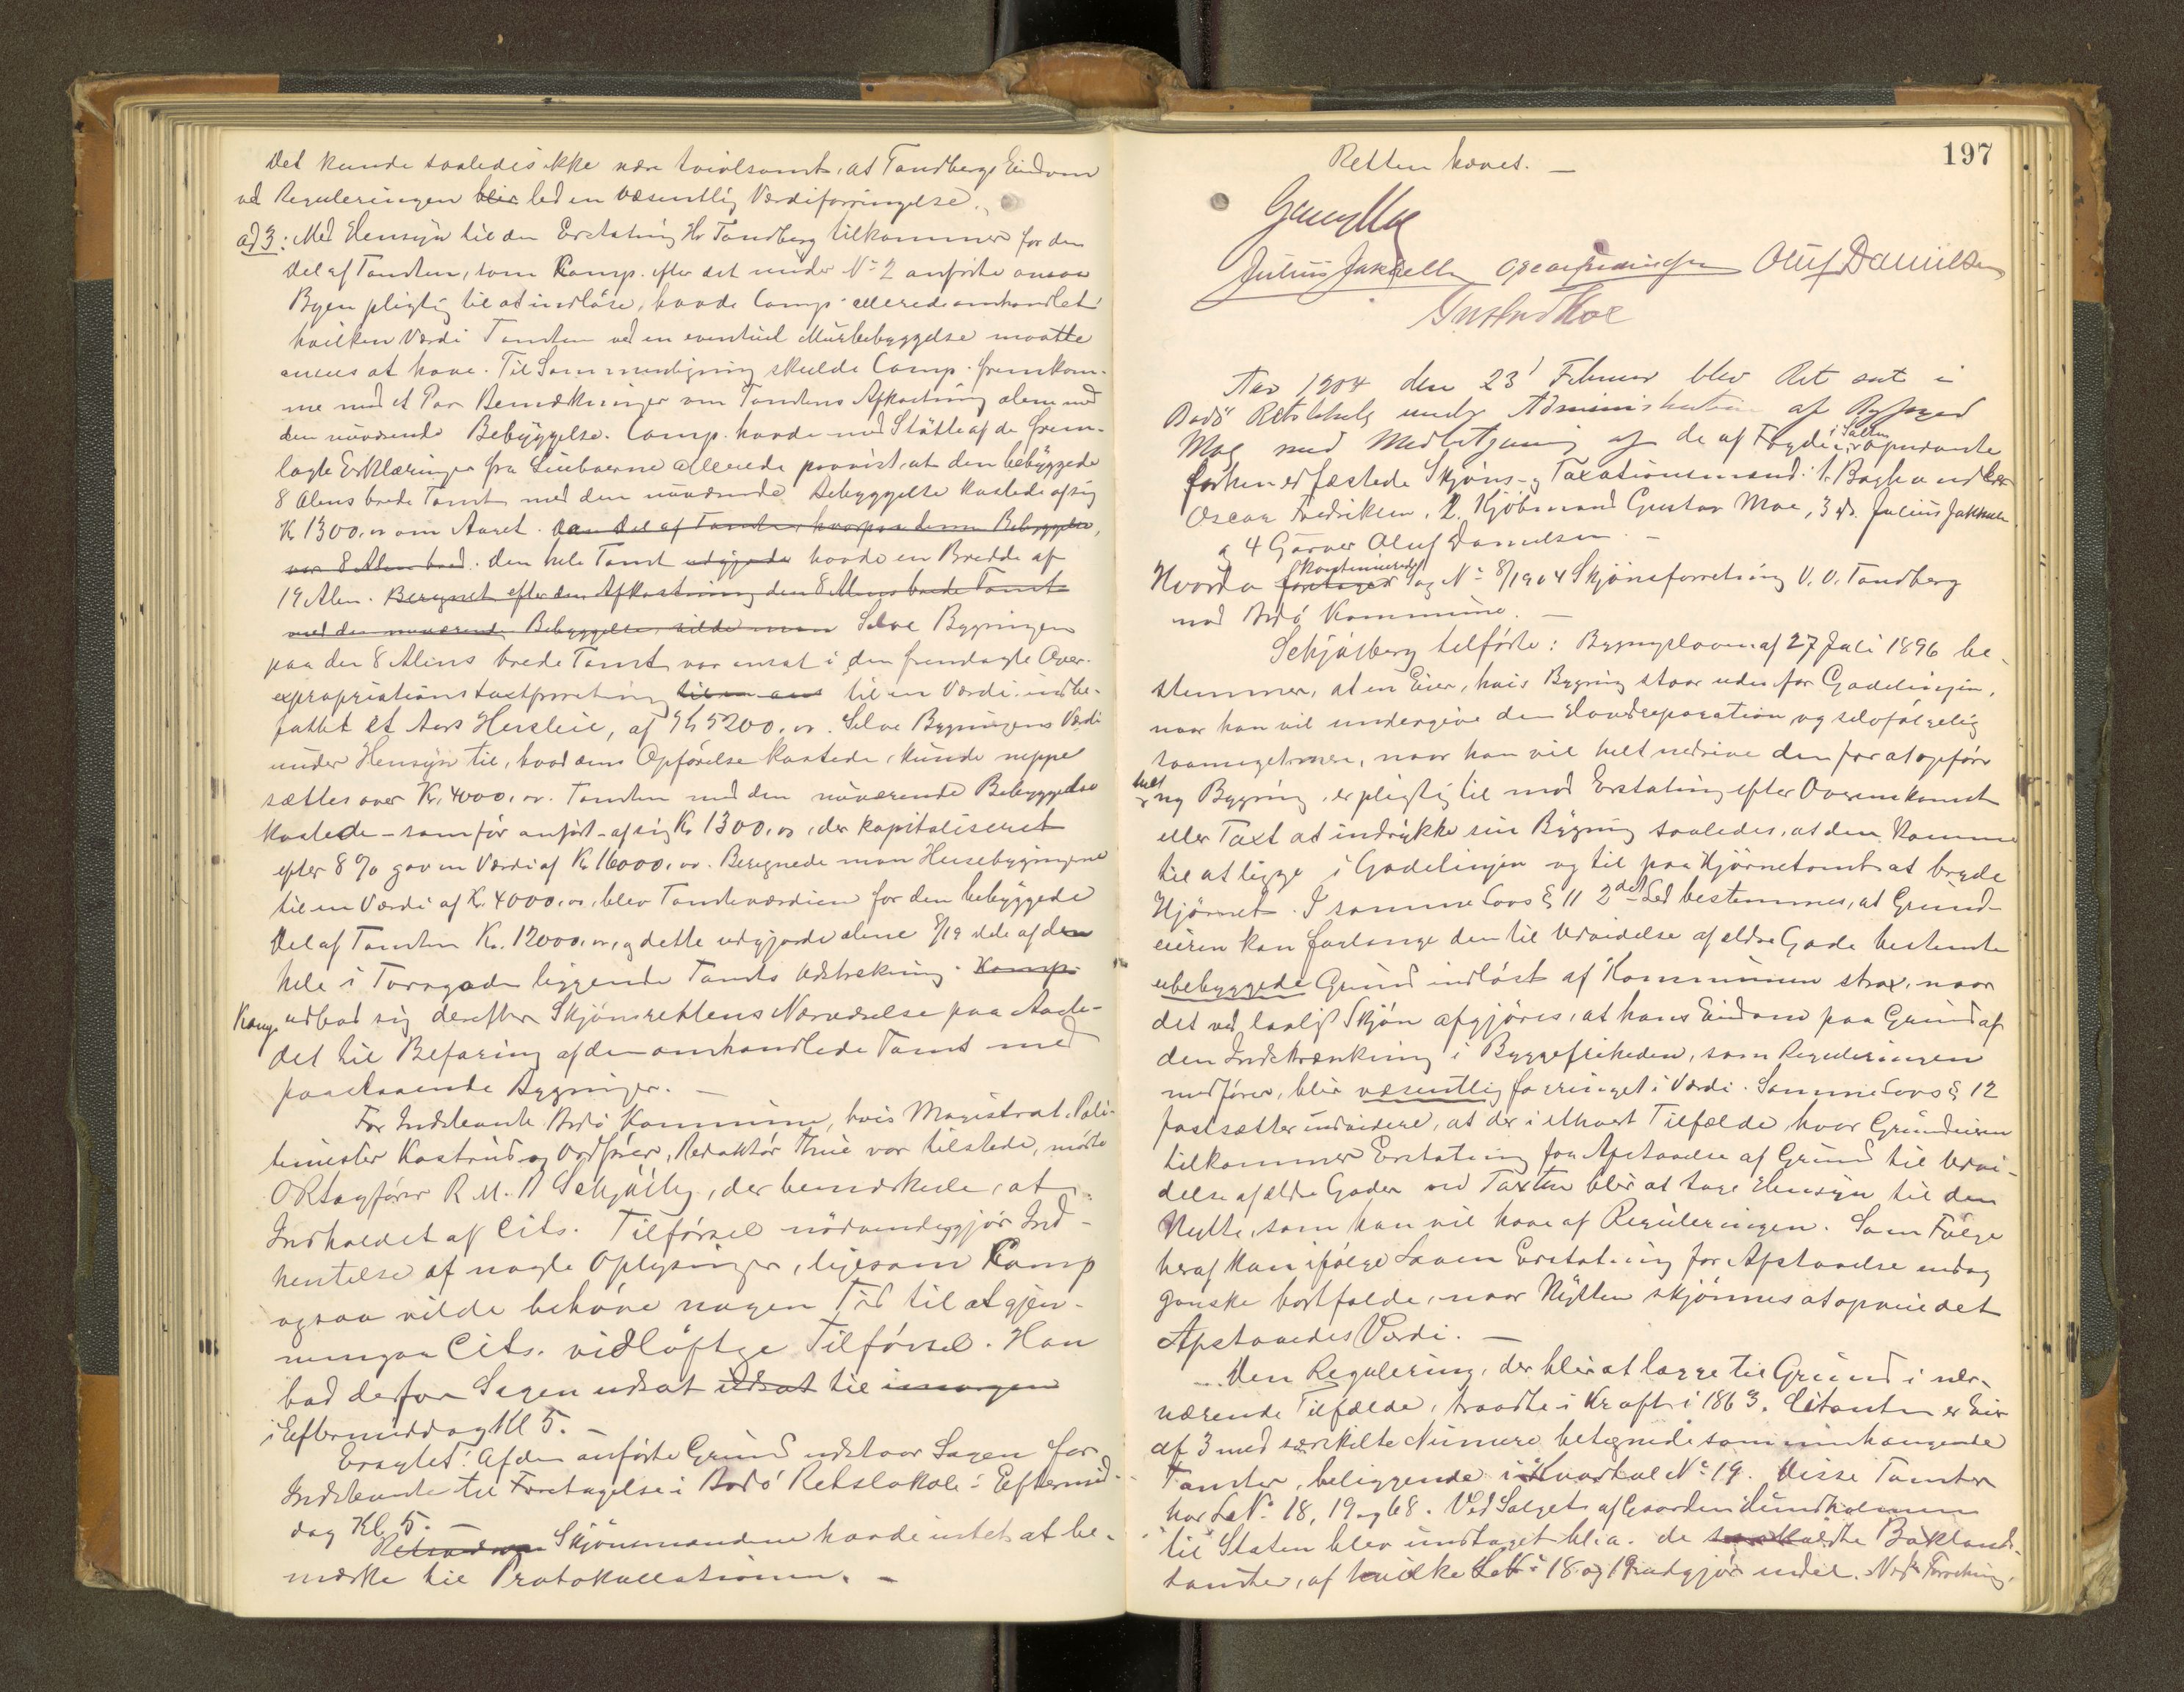 Det kunde saaledes ikke være tvivlsomt, at Tandbergs Eiendom
ved Reguleringen blir led en væsentlig Værdiforringelse.
ad 3: Med Hensyn til den Erstatning Hr Tandberg tilkommer for den
Del af Tomten, som Comp. efter det under No 2 anførte ansaa
Byen pligtig til at indløse, havde Comp. allerede omhandlet
hvilken Værdi Tomten ved en eventuel Murbebyggelse maatte
ansees at have. Til Sammenligning skulde Comp. fremkom-
me med et Par Bemærkninger om Tomtens Afkastning alene med
den nuværende Bebyggelse. Comp. havde med Støtte af de frem-
lagte Erklæringer fra Leieboerne allerede paavist, at den bebyggede
8 Alens brede Tomt med den nuværende Bebyggelse kastede af sig
Kr 1300,00 om Aaret. Den Del af Tomten, hvorpaa denne Bebyggelse,
var 8 Alen bred. Den hele Tomt udgjorde havde en Bredde af
19 Alen. Beregnet efter den Afkastning den 8 Alens brede Tomt
med den nuværende Bebyggelse, vilde man Selve Bygningen
paa den 8 Alens brede Tomt var ansat i den fremlagte Over-
expropriationstaxtforretning til en Værdi, indbe-
fattet et Aars Husleie, af Kr 5200,00. Selve Bygningens Værdi
under Hensyn til, hvad dens Opførelse kostede, kunde neppe
sættes over Kr. 4000,00. Tomten med den nuværende Bebyggelse
kastede - som før anført - af sig Kr 1300,00, der kapitaliseret
efter 8 % gav en Værdi af Kr 16000,00. Beregnede man Husebygningerne
til en Værdi af Kr. 4000,00, blev Tomteværdien for den bebyggede
Del af Tomten Kr. 12000,00, og dette udgjorde alene 8/19 dele af den
hele i Torvgaden liggende Tomts Udstrækning. Komp.
Komp. udbad sig derefter Skjønsrettens Nærværelse paa Aaste-
det til Befaring af den omhandlede Tomt med
paastaaende Bygninger. —
For Indstevnte Bodø Kommune, hvis Magistrat, Poli-
timester Kastrud og Ordfører, Redaktør Thue var tilstede, mødte
ORsagfører R. M. B Schjølberg, der bemærkede, at
Indholdet af Cits. Tilførsel nødvendiggjør Ind-
hentelse af nogle Oplysninger, ligesom Komp
ogsaa vilde behøve nogen Tid til at gjen-
nemgaa Cits. vidløftige Tilførsel. Han
bad derfor Sagen udsat udsat til imorgen
i Eftermiddag Kl 5. —
Eragtet: Af den anførte Grund udstaar Sagen for
Indstevnte til Foretagelse i Bodø Retslokale i Eftermid-
dag Kl. 5. —
Skjønsmændene havde intet at be-
mærke til Protokollationen. —
197
Retten hævet. —
Julius Jakhelln Oscar Fredriksen Oluf Danielsen
Gustav Moe
Aar 1904 den 23' Februar blev Ret sat i
Bodø Retslokale under Administration af Byfoged
Moe med Medbetjening af de af Fogden i Salten opnævnte
forhen edfæstede Skjøns- og Taxationsmænd: 1. Boghandler
Oscar Fredriksen, 2. Kjøbmand Gustav Moe, 3 do. Julius Jakhelln
og 4 Garver Oluf Danielsen. —
Hvorda foretages kontinueredes Sag No 8/1904 Skjønsforretning V. O. Tandberg
mod Bodø Kommune. —
Schjølberg tilførte: Bygningsloven af 27 Juli 1896 be-
stemmer, at en Eier, hvis Bygning staar udenfor Gadelinjen,
naar han vil undergive den Hovedreparation og selvfølgelig
saameget mere, naar han vil helt nedrive den for at opføre
helt ny Bygning, er pligtig til mod Erstatning efter Overenskomst
eller Taxt at indrykke sin Bygning saaledes, at den kommer
til at ligge i Gadelinjen og til paa Hjørnetomt at bryde
Hjørnet. I samme Lovs § 11 2det Led bestemmes, at Grund-
eieren kan forlange den til Udvidelse af ældre Gade bestemte
ubebyggede Grund indløst af Kommunen strax, naar
det ved lovligt Skjøn afgjøres, at hans Eiendom paa Grund af
den Indskrænkning i Byggefriheden, som Reguleringen
medfører, blir væsentlig forringet i Værdi. Samme Lovs § 12
fastsætter endvidere, at der i ethvert Tilfælde, hvor Grundeieren
tilkommer Erstatning for Afstaaelse af Grund til Udvi-
delse af ældre Gader ved Taxten blir at tage Hensyn til den
Nytte, som han vil have af Reguleringen. Som Følge
heraf kan ifølge Loven Erstatning for Afstaaelse endog
ganske bortfalde, naar Nytten skjønnes at opveie det
Afstaaedes Værdi. —
Den Regulering, der blir at lægge til Grund i nær-
værende Tilfælde, traadte i Kraft i 1863. Citanten er Eier
af 3 med særskilte Numere betegnede sammenhængende
Tomter, beliggende i Kvartal No 19. Disse Tomter
har LNo. 18, 19 og 68. Ved Salget af Gaarden Hundholmen
til Staten blev undtaget bl. a. de saakaldte Bakland-
tomter, af hvilke LNo 18 og 19 udgjør endel.